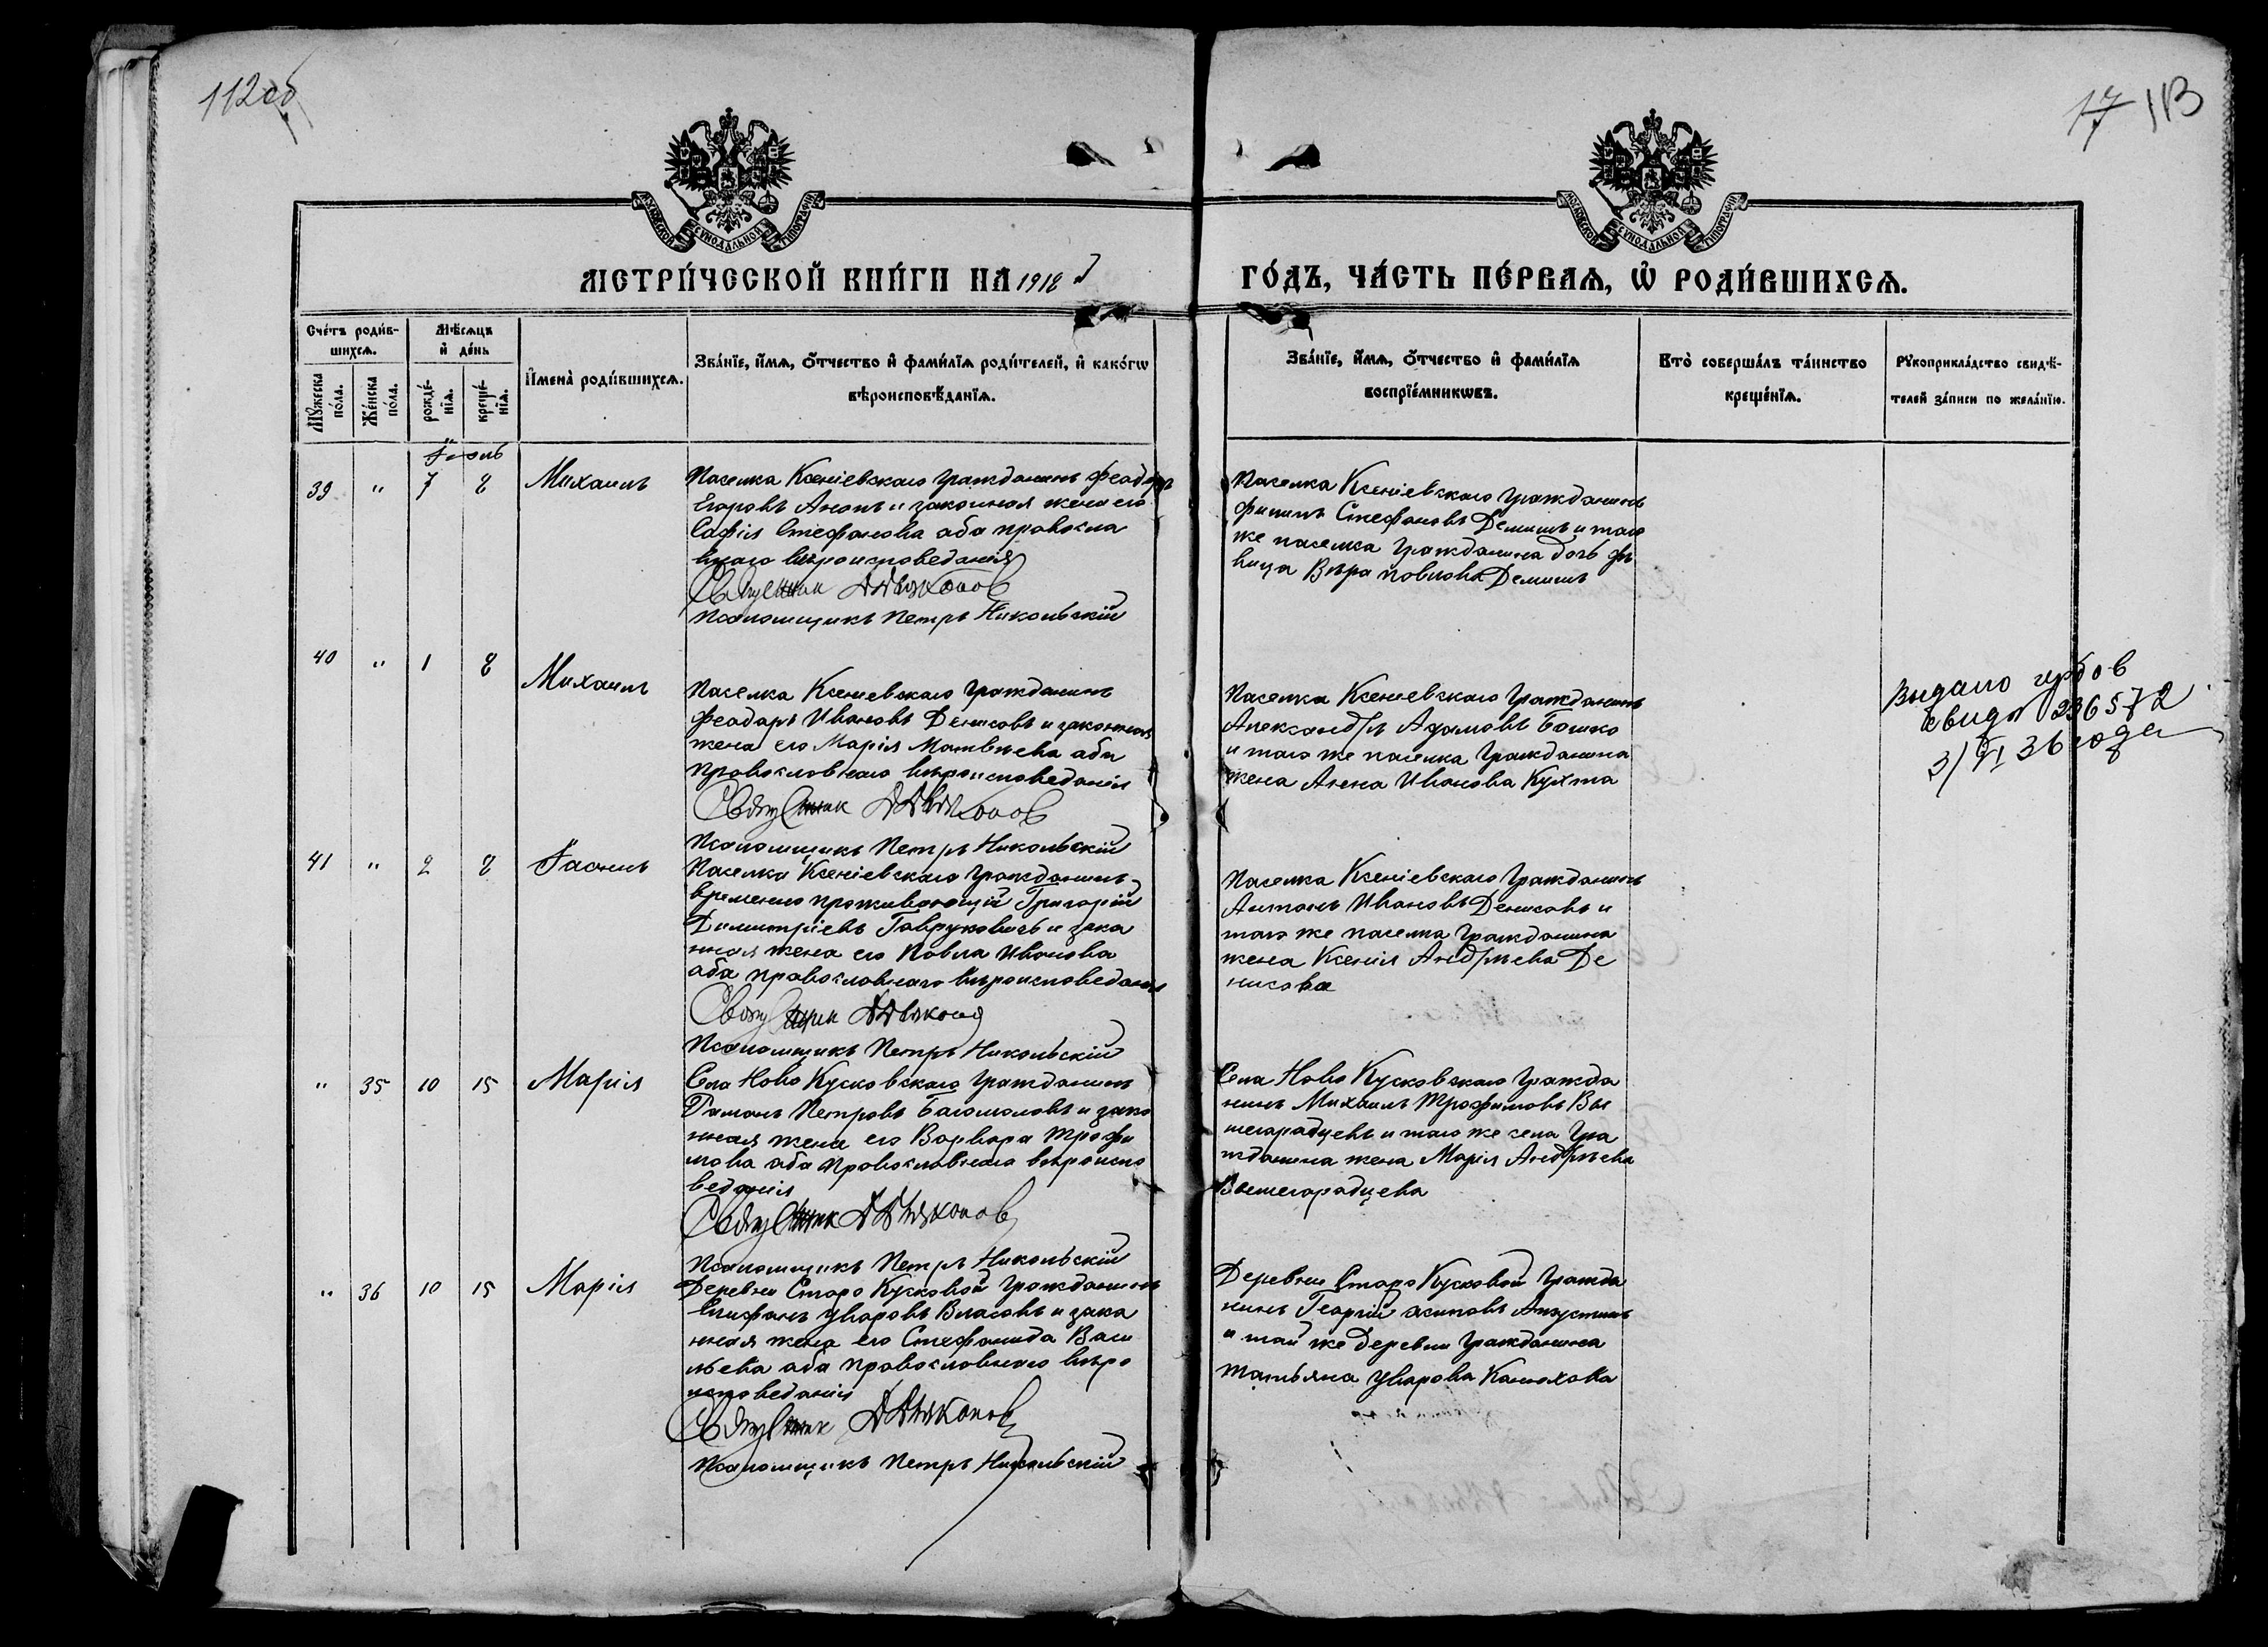 112 об
17 113
МОСКОВСКОЙ СѴНОДАЛЬНОЙ ТИПОГРАФІИ
МОСКОВСКОЙ СѴНОДАЛЬНОЙ ТИПОГРАФІИ
МЕТРИ́ЧЕСКОЙ КНИ́ГИ НА 1918
ГО́ДЪ, ЧА́СТЬ ПЕ́РВАѦ, Ѽ РОДИ́ВШИХСѦ.
Сче́тъ роди́в-
шихсѧ.
Мꙋ́жеска по́ла.
Же́нска по́ла.
Мѣ́сѧцъ и҆ де́нь
рожде́-нїѧ.
креще́-нїѧ.
И҆мена̀ роди́вшихсѧ.
Зва́нїе, и҆́мѧ, ѻ҆́тчество и҆ фами́лїѧ роди́телей, и҆ како́гѡ
вѣроисповѣ́данїѧ.
Зва́нїе, и҆́мѧ, ѻ҆́тчество и҆ фами́лїѧ
воспрїе́мникѡвъ.
Кто̀ соверша́лъ та́инство
креще́нїѧ.
Рꙋкоприкла́дство свидѣ́-
телей за́писи по жела́нїю.
39 " 7 8 Михаилъ
Паселка Ксеніевскаго гражданинъ Феадоръ
Егоровъ и законная жена его
Софія Стефанова аба правосла
внаго вѣроисповеданія
Священник Д Дьяконов
Псаломщикъ Петръ Никольскій
Паселка Ксеніевскаго гражданинъ
Филипъ Стефановъ и таго
же паселка гражданина дочь дѣ
вица Вѣра Повлова
40 " 1 8 Михаилъ
Паселка Ксеніевскаго гражданинъ
Феадаръ Ивановъ Денисовъ и законная
жена его Марія Матвѣева аба
православнаго вѣроисповеданія
Священник Д Дьяконов
Псаломщикъ Петръ Никольскій
Паселка Ксеніевскаго гражданинъ
Александръ Адамовъ Бошко
и таго же паселка гражданина
жена Агена Иванова Кухта
Выдано гербов
свид № 236572
3/VI 36 года
41 " 2 8
Паселка Ксеніевскаго гражданинъ
временно проживающій Григорій
Димитріевъ Гавруковичъ и зака
нная жена его Повла Иванова
аба православнаго вѣроисповеданія
Священник Д Дьяконов
Псаломщикъ Петръ Никольскій
Паселка Ксеніевскаго гражданинъ
Антонъ Ивановъ Денисовъ и
таго же паселка гражданина
жена Ксенія Андрѣева Де
нисова
" 35 10 15 Марія
Села Ново Кусковскаго гражданинъ
Раманъ Петровъ Багомоловъ и зако
нная жена его Варвара Трофи
мова аба православнаго вѣроиспо
веданія
Священник Д Дьяконов
Псаломщикъ Петръ Никольскій
Села Ново Кусковскаго гражда
нинъ Михаилъ Трофимовъ Вы
шегарадцевъ и таго же села гра
жданина жена Марія Андрѣева
Вышегарадцева
" 36 10 15 Марія
Деревни Старо Кусковой гражданинъ
Епифанъ Уваровъ Власовъ и зака
нная жена его Стефанида Васи
льева аба православнаго вѣро
исповеданія
Священник Д Дьяконов
Псаломщикъ Петръ Никольскій
Деревни Старо Кусковой гражда
нинъ Георгій
и той же деревни гражданина
Татьяна Уварова Канюхова